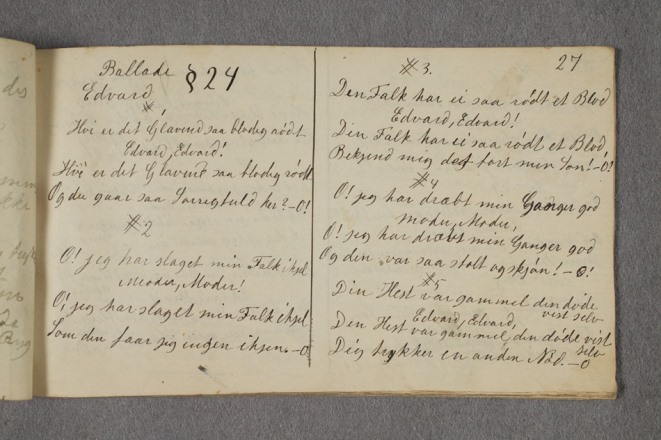 27
Ballade § 24
Edvard
# 1
Hvi er dit Glavend saa blodig rødt
Edvard, Edvard!
Hvi er dit Glavend saa blodig rødt
Og du gaar saa Sorrigfuld her? - O!
# 2
O! jeg har slaget min Falk ihjel
Moder, Moder!
O! jeg har slaget min Falk ihjel
Som den faar jeg ingen igjen. - O
# 3.
Den Falk har ei saa rødt et Blod
Edvard, Edvard!
Din Falk har ei saa rødt et Blod
Bekjend mig det fort min Søn! - O!
# 4
O! jeg har dræbt min Ganger god
Moder, Moder,
O! jeg har dræbt min Ganger god
Og den var saa stolt og skjøn! - O!
# 5
Din Hest var gammel den døde
vist selv
Edvard, Edvard,
Den Hest var gammel, den døde vist
selv
Dig trykker en anden Nød. - O